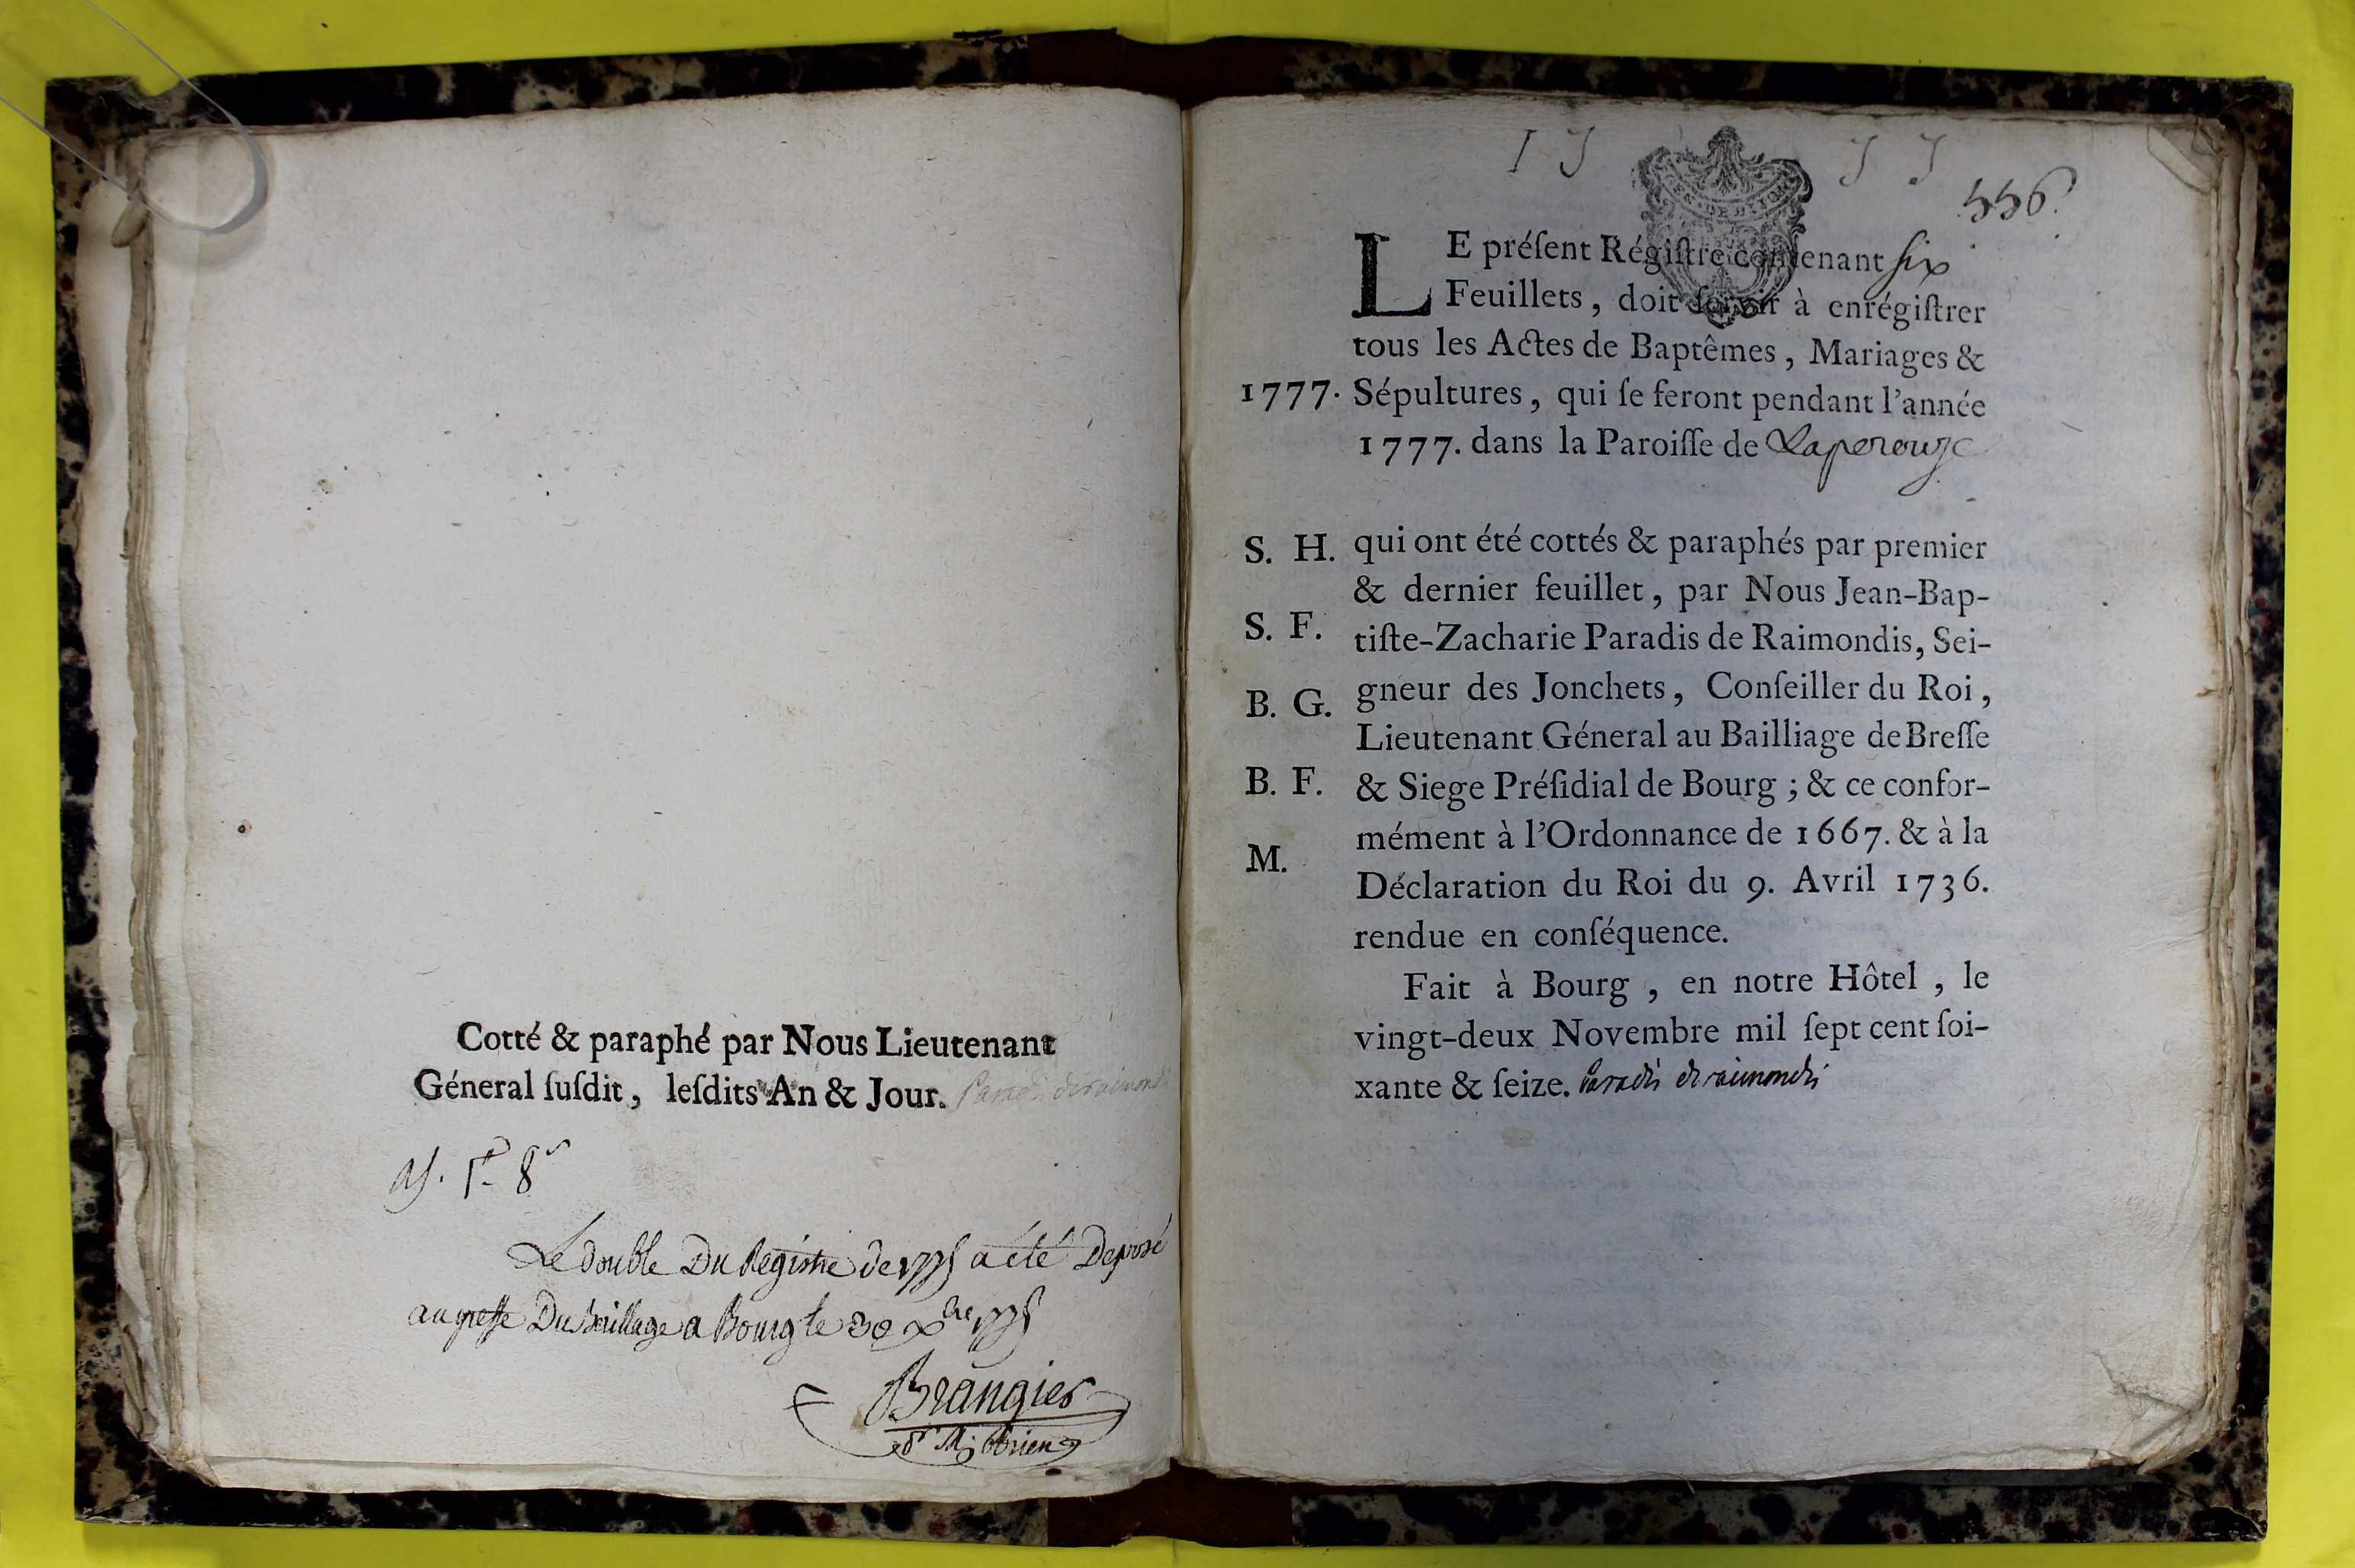 Cotté & paraphé par Nous Lieutenant
Géneral ſuſdit, leſdits An & Jour. Paradis deraimondis
Le double Du Registre de 1775 a été Deposé
au greffe Du Bailliage a Bourg le 30 xbre 1775
Brangier
1 7 7 7
556.
LE préſent Régiſtre contenant six
Feuillets, doit ſervir à enrégiſtrer
tous les Actes de Baptêmes, Mariages &
1777. Sépultures, qui ſe feront pendant l'année
1777. dans la Paroiſſe de Laperouze
S. H. qui ont été cottés & paraphés par premier
& dernier feuillet, par Nous Jean-Bap-
S. F. tiſte-Zacharie Paradis de Raimondis, Sei-
B. G. gneur des Jonchets, Conſeiller du Roi,
Lieutenant Géneral au Bailliage de Breſſe
B. F. & Siege Préſidial de Bourg ; & ce confor-
mément à l'Ordonnance de 1667. & à la
M. Déclaration du Roi du 9. Avril 1736.
rendue en conſéquence.
Fait à Bourg , en notre Hôtel , le
vingt-deux Novembre mil ſept cent ſoi-
xante & ſeize. Paradis deraimondis